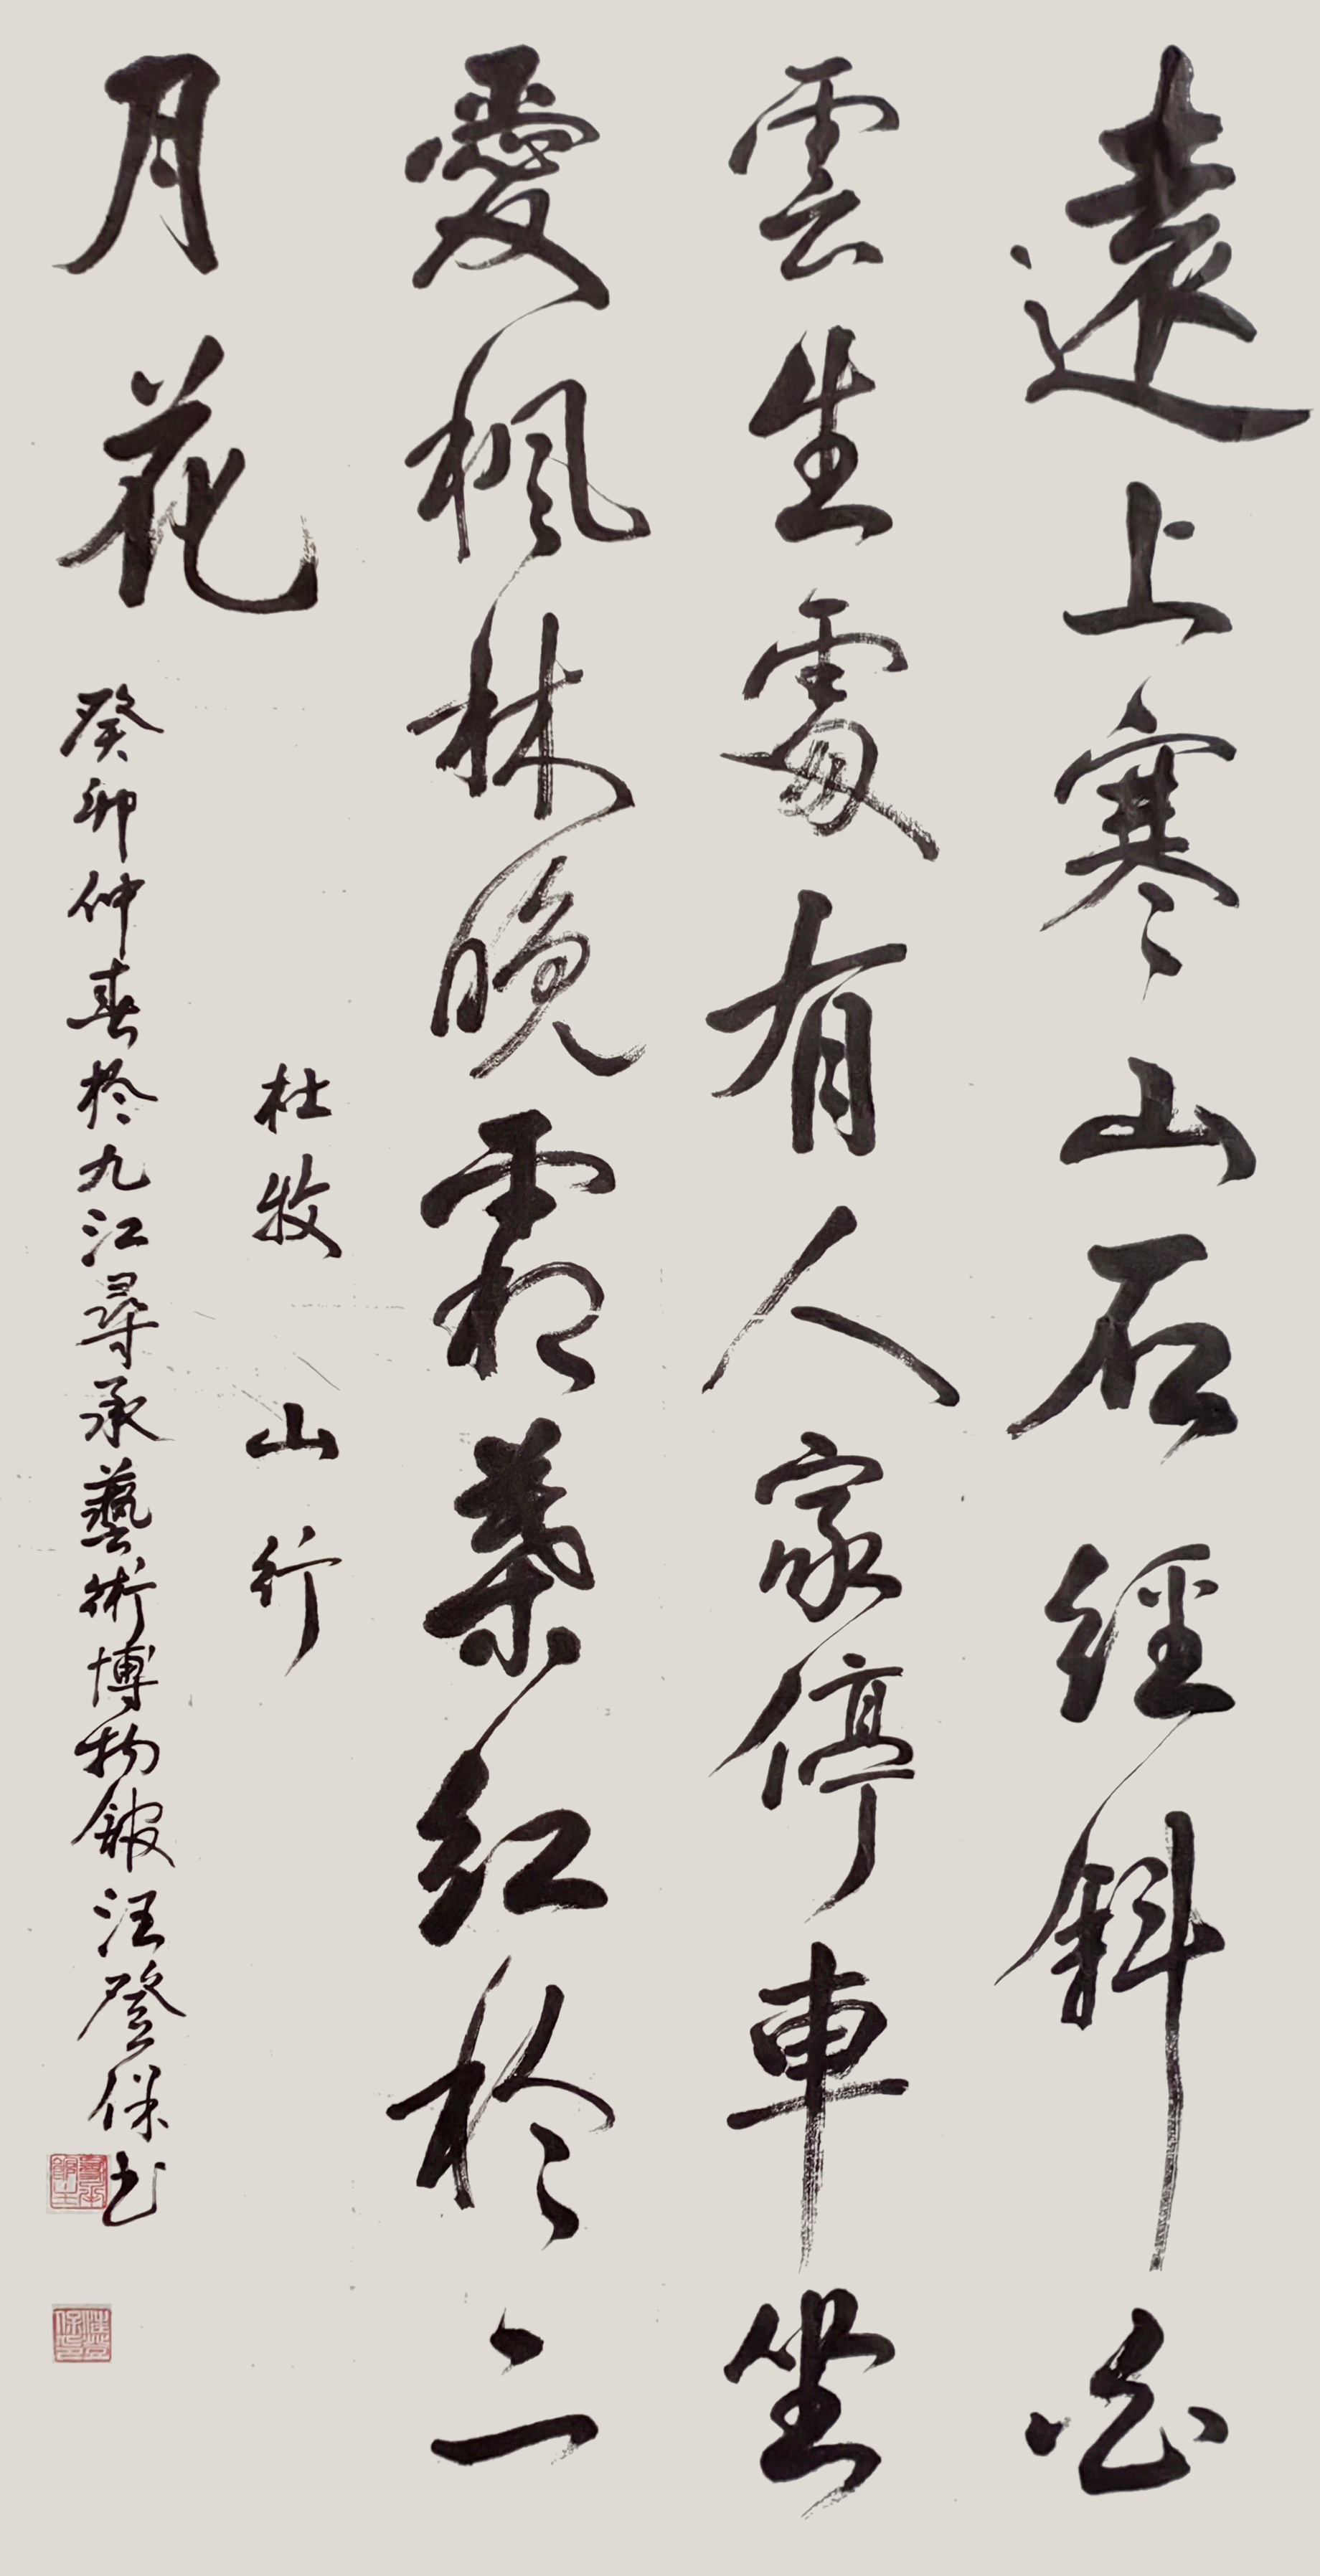 遠上寒山石經斜白
雲生處有人家停車坐
愛楓林晚霜葉紅於二
月花
杜牧 山行
癸卯仲春於九江尋承藝術博物館汪登保书